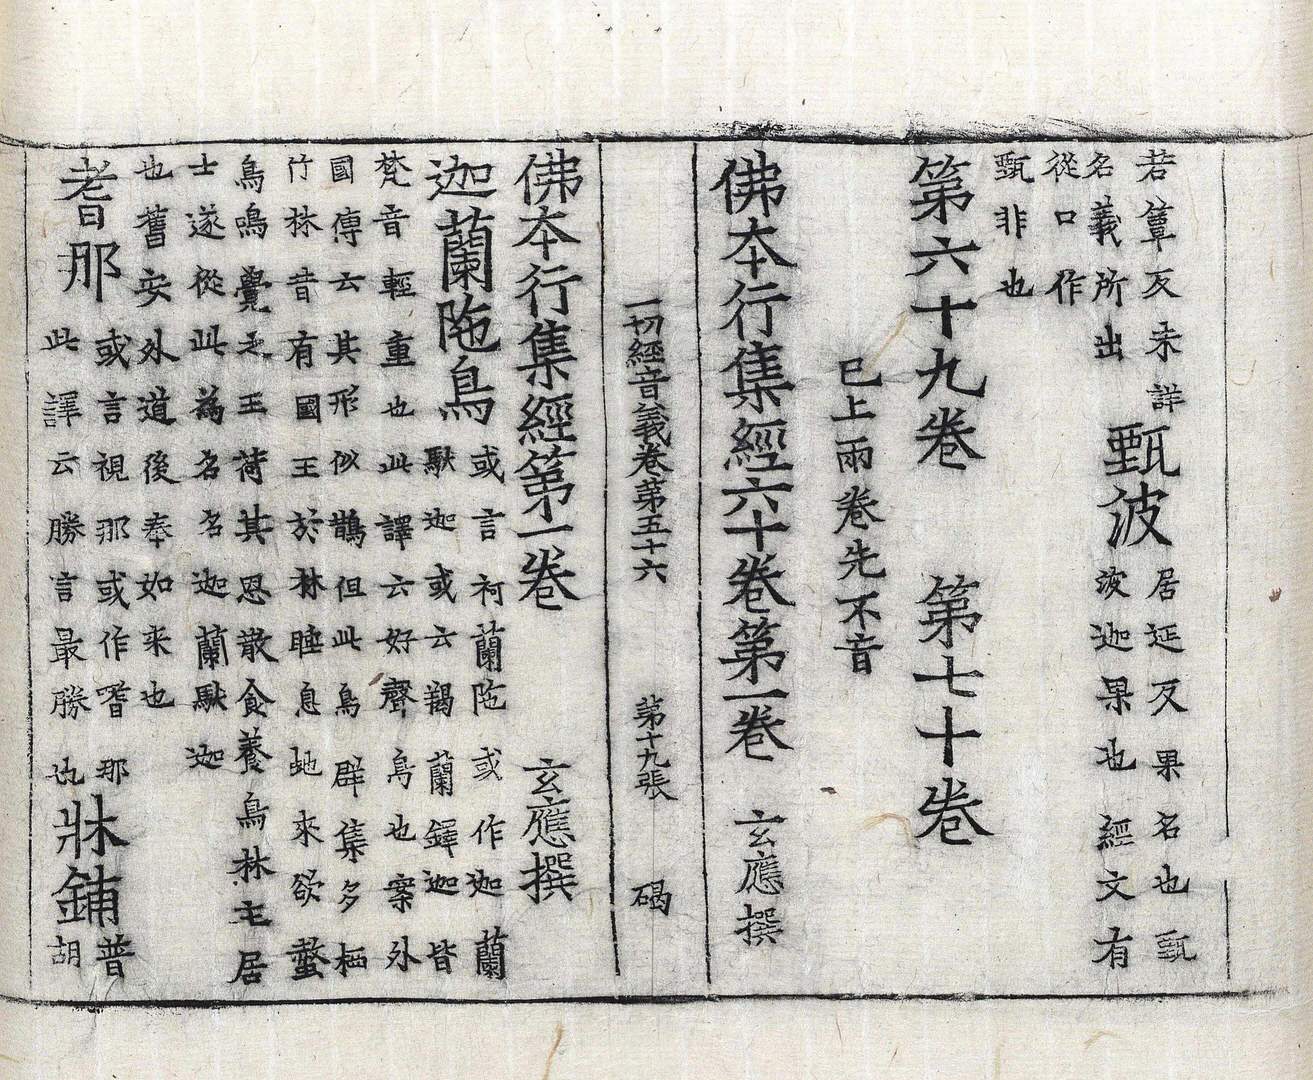 若簟反未詳
名義所出
甄波
居延反果名也甄
波迦果也經文有
從口作
甄非也
第六十九卷 第七十卷
已上兩卷先不音
佛本行集經六十卷第一卷 玄應撰
一切經音義卷第五十六 第十九張 碣
佛本行集經第一卷 玄應撰
迦蘭陁鳥
或言柯蘭陁或作迦蘭
馱迦或云羯蘭鐸迦皆
梵音輕重也此譯云好聲鳥也案外
國傳云其形似鵲但此鳥群集多栖
竹林昔有國王於林睡息虵來欲螫
鳥鳴覺之王荷其恩散食養鳥林主居
士遂從此為名名迦蘭馱迦
也舊安外道後奉如來也
耆那
或言視那或作嗜那
此譯云勝言最勝也
牀鋪
普
胡